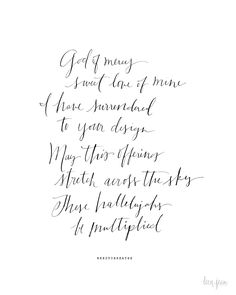 God of mercy
sweet love of mine
I have surrendered
to your design
May this offering
stretch across the sky
These hallelujahs
be multiplied